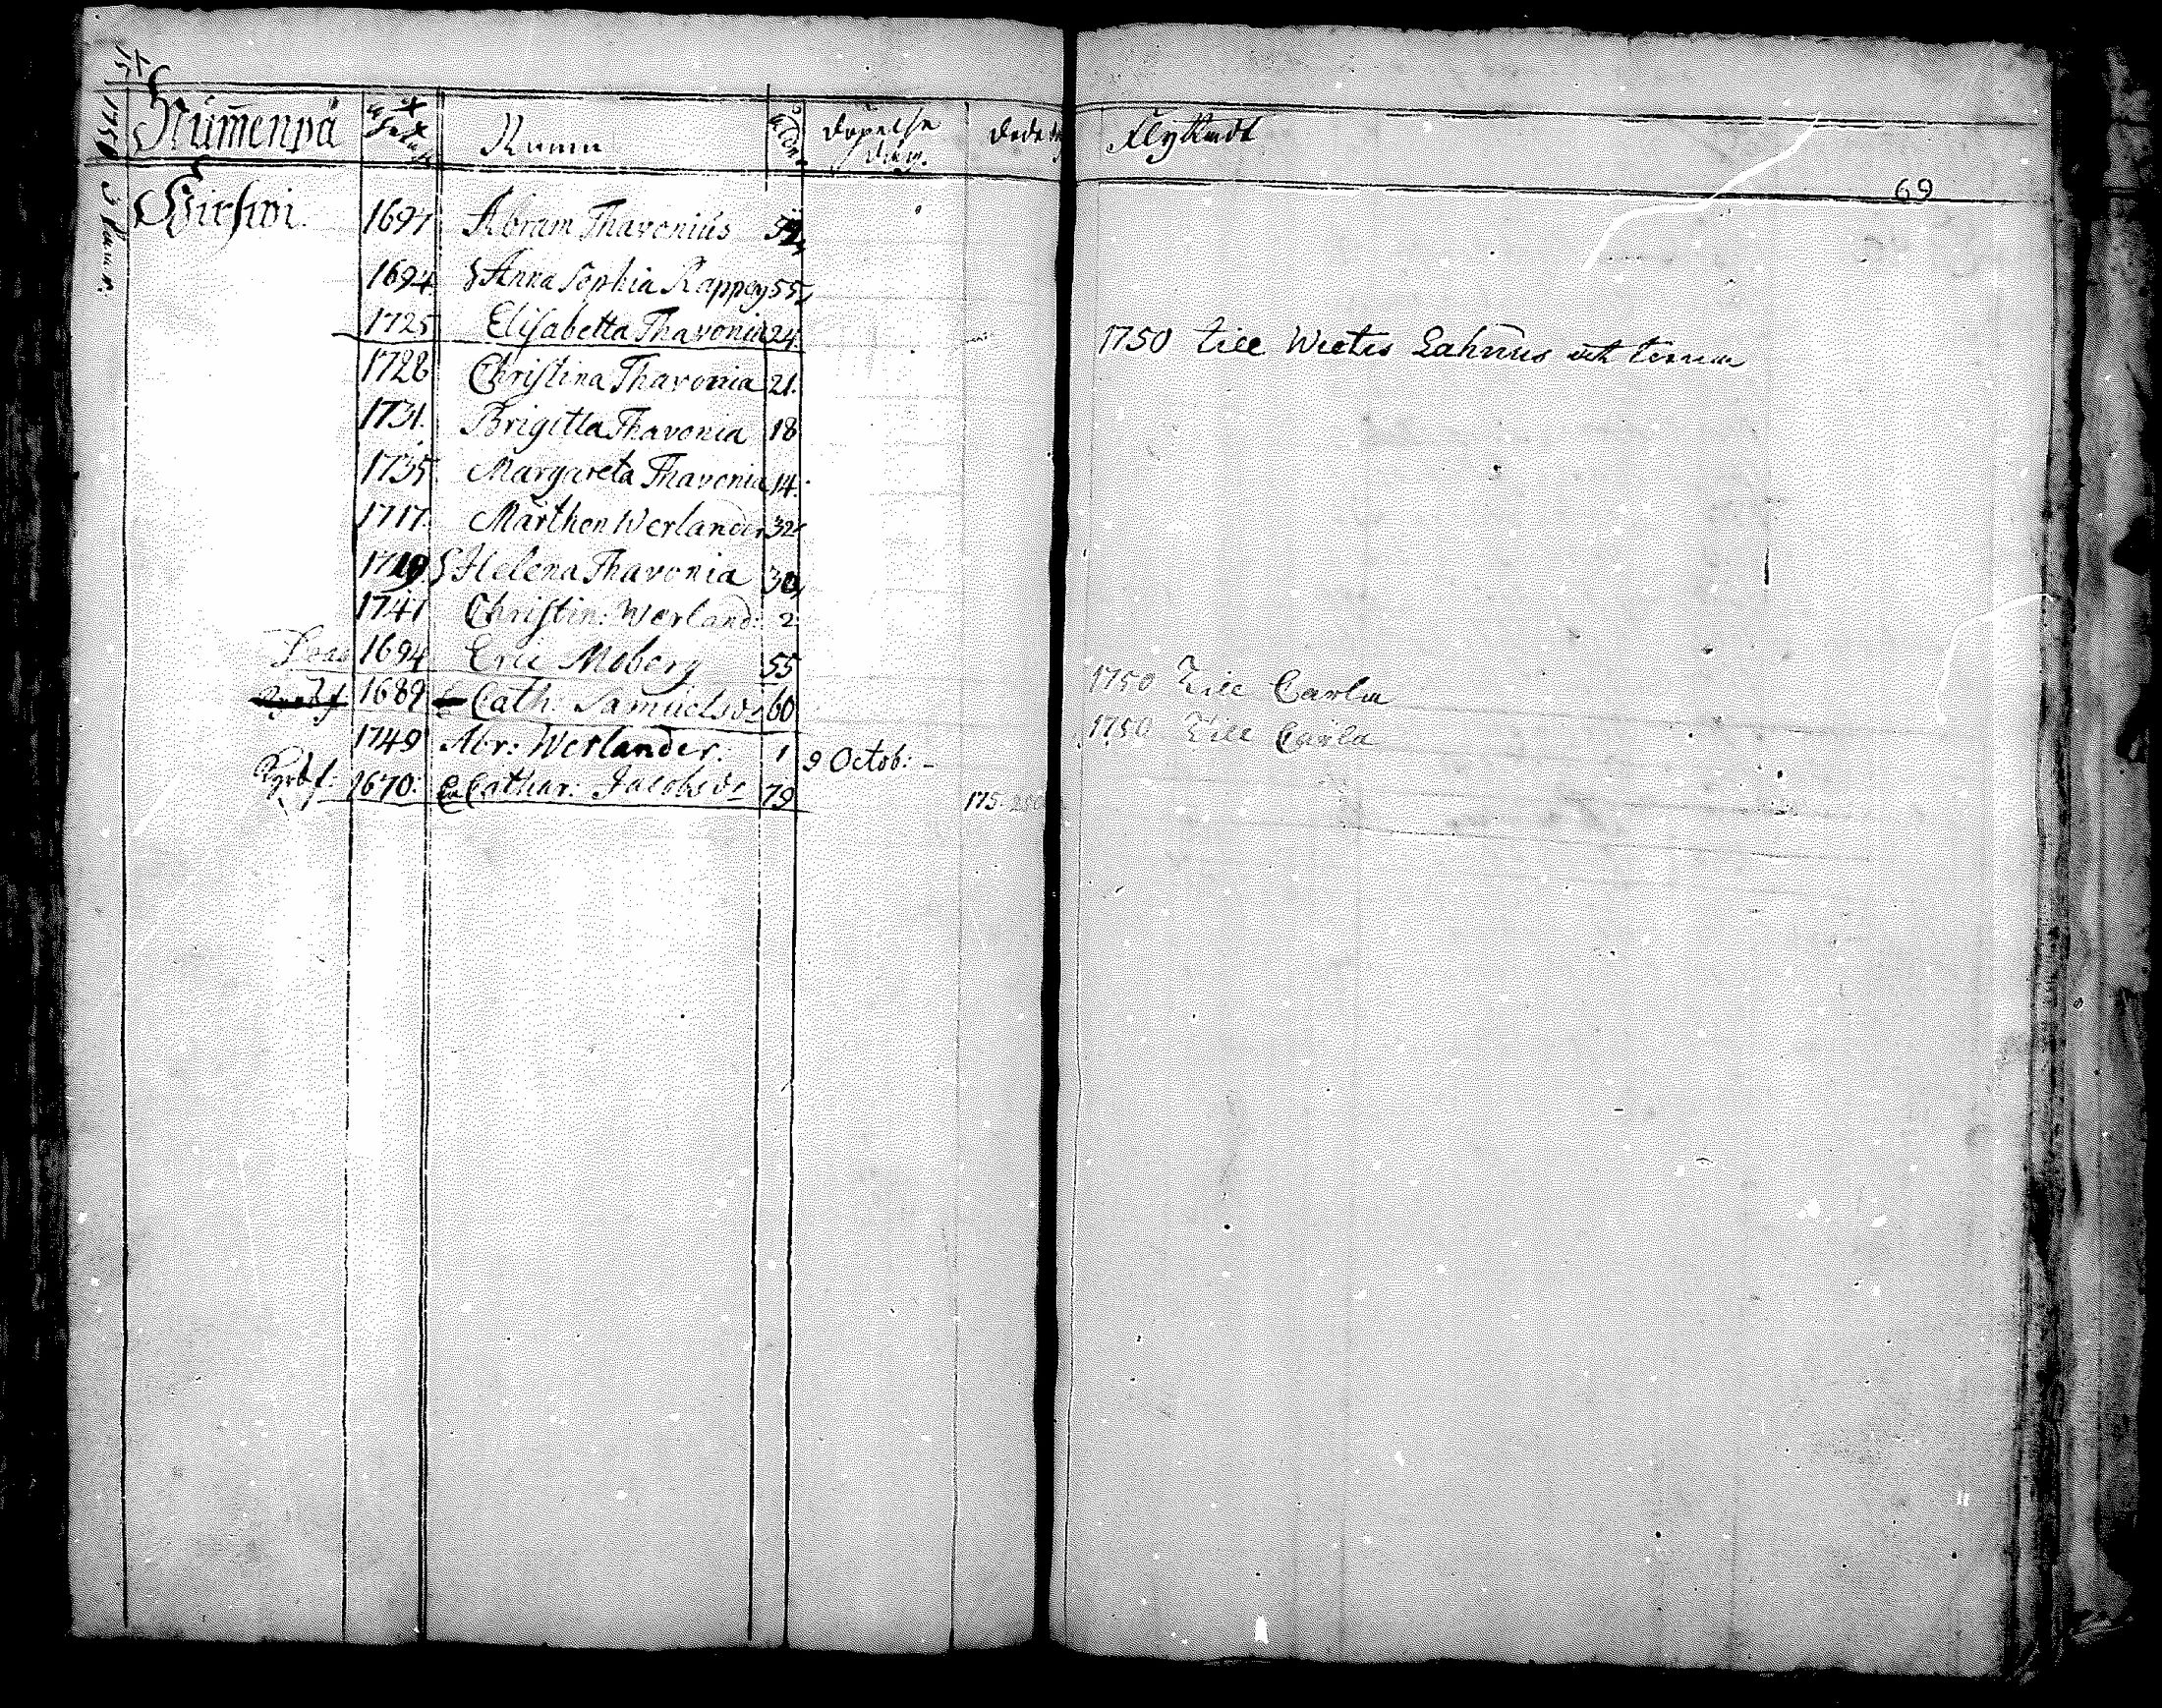 Num̄enpä Namn Ålder Döpelse dag. Flyttadt
69
1750 Hirswi. 1697 Abram Thavonius 52
1694 Anna Sophia Rappog 55
1725 Elisabetta Thavonia 24 1750 till Wichtis
1728 Christina Thavonia 21.
1731. Brigitta Thavonia 18
1735 Margareta Thavonia 14.
1717. Mårthen Werlander 32
1719 Helena Thavonia 30
1747 Christin: Werland: 2
1694 Eric Moberg 55 1750 Till Carla
1689 Cath. Samuelsdr 60 1750 Till Carla
1749 Abr: Werlander. 1 9 Octob:
1670: Cathar: Jacobsdr 79